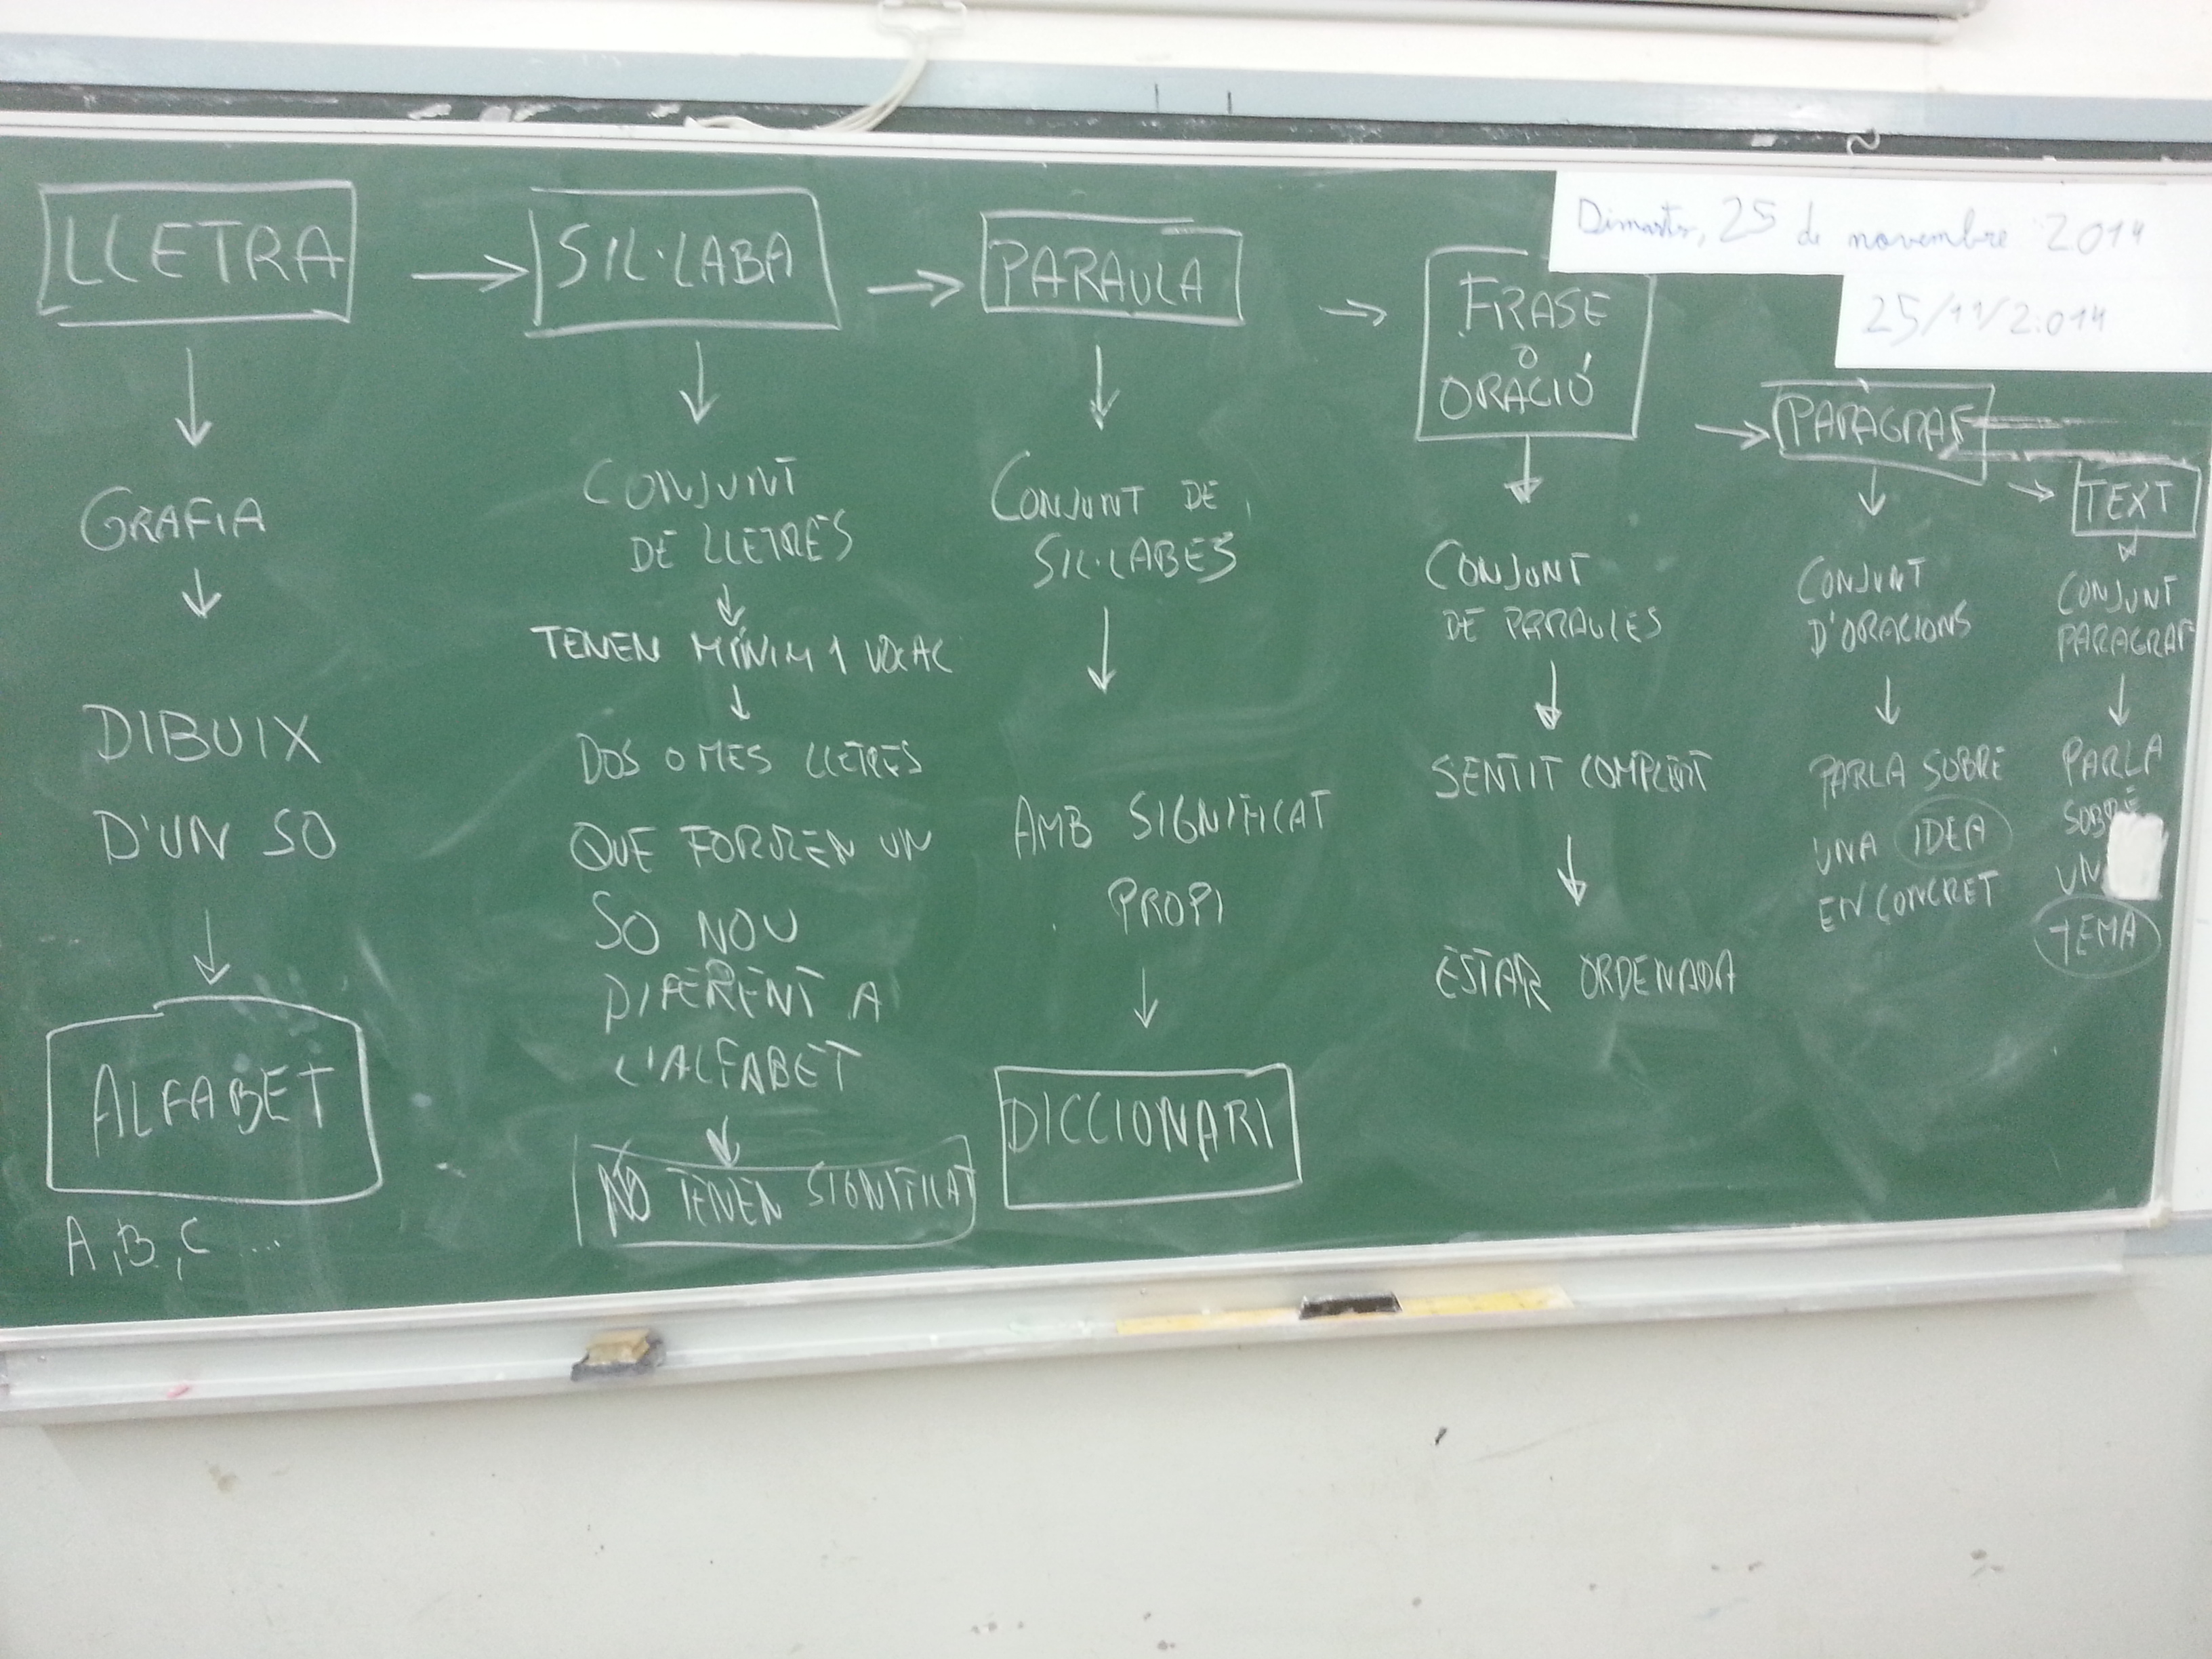 Dimarts, 25 de novembre 2014
25/11/2.014
LLETRA
GRAFIA
DIBUIX
D'UN SO
ALFABET
A, B, C ...
SIL·LABA
CONJUNT
DE LLETRES
TENEN MÍNIM 1 VOCAL
DOS O MES LLETRES
QUE FORMEN UN
SO NOU
DIFERENT A
L'ALFABET
NO TENEN SIGNIFICAT
PARAULA
CONJUNT DE
SIL·LABES
AMB SIGNIFICAT
PROPI
DICCIONARI
FRASE
O
ORACIÓ
CONJUNT
DE PARAULES
SENTIT COMPLERT
ESTAR ORDENADA
PARÀGRAF
CONJUNT
D'ORACIONS
PARLA SOBRE
UNA IDEA
EN CONCRET
TEXT
CONJUNT
PARAGRAF
PARLA
SOBRE
UN
TEMA